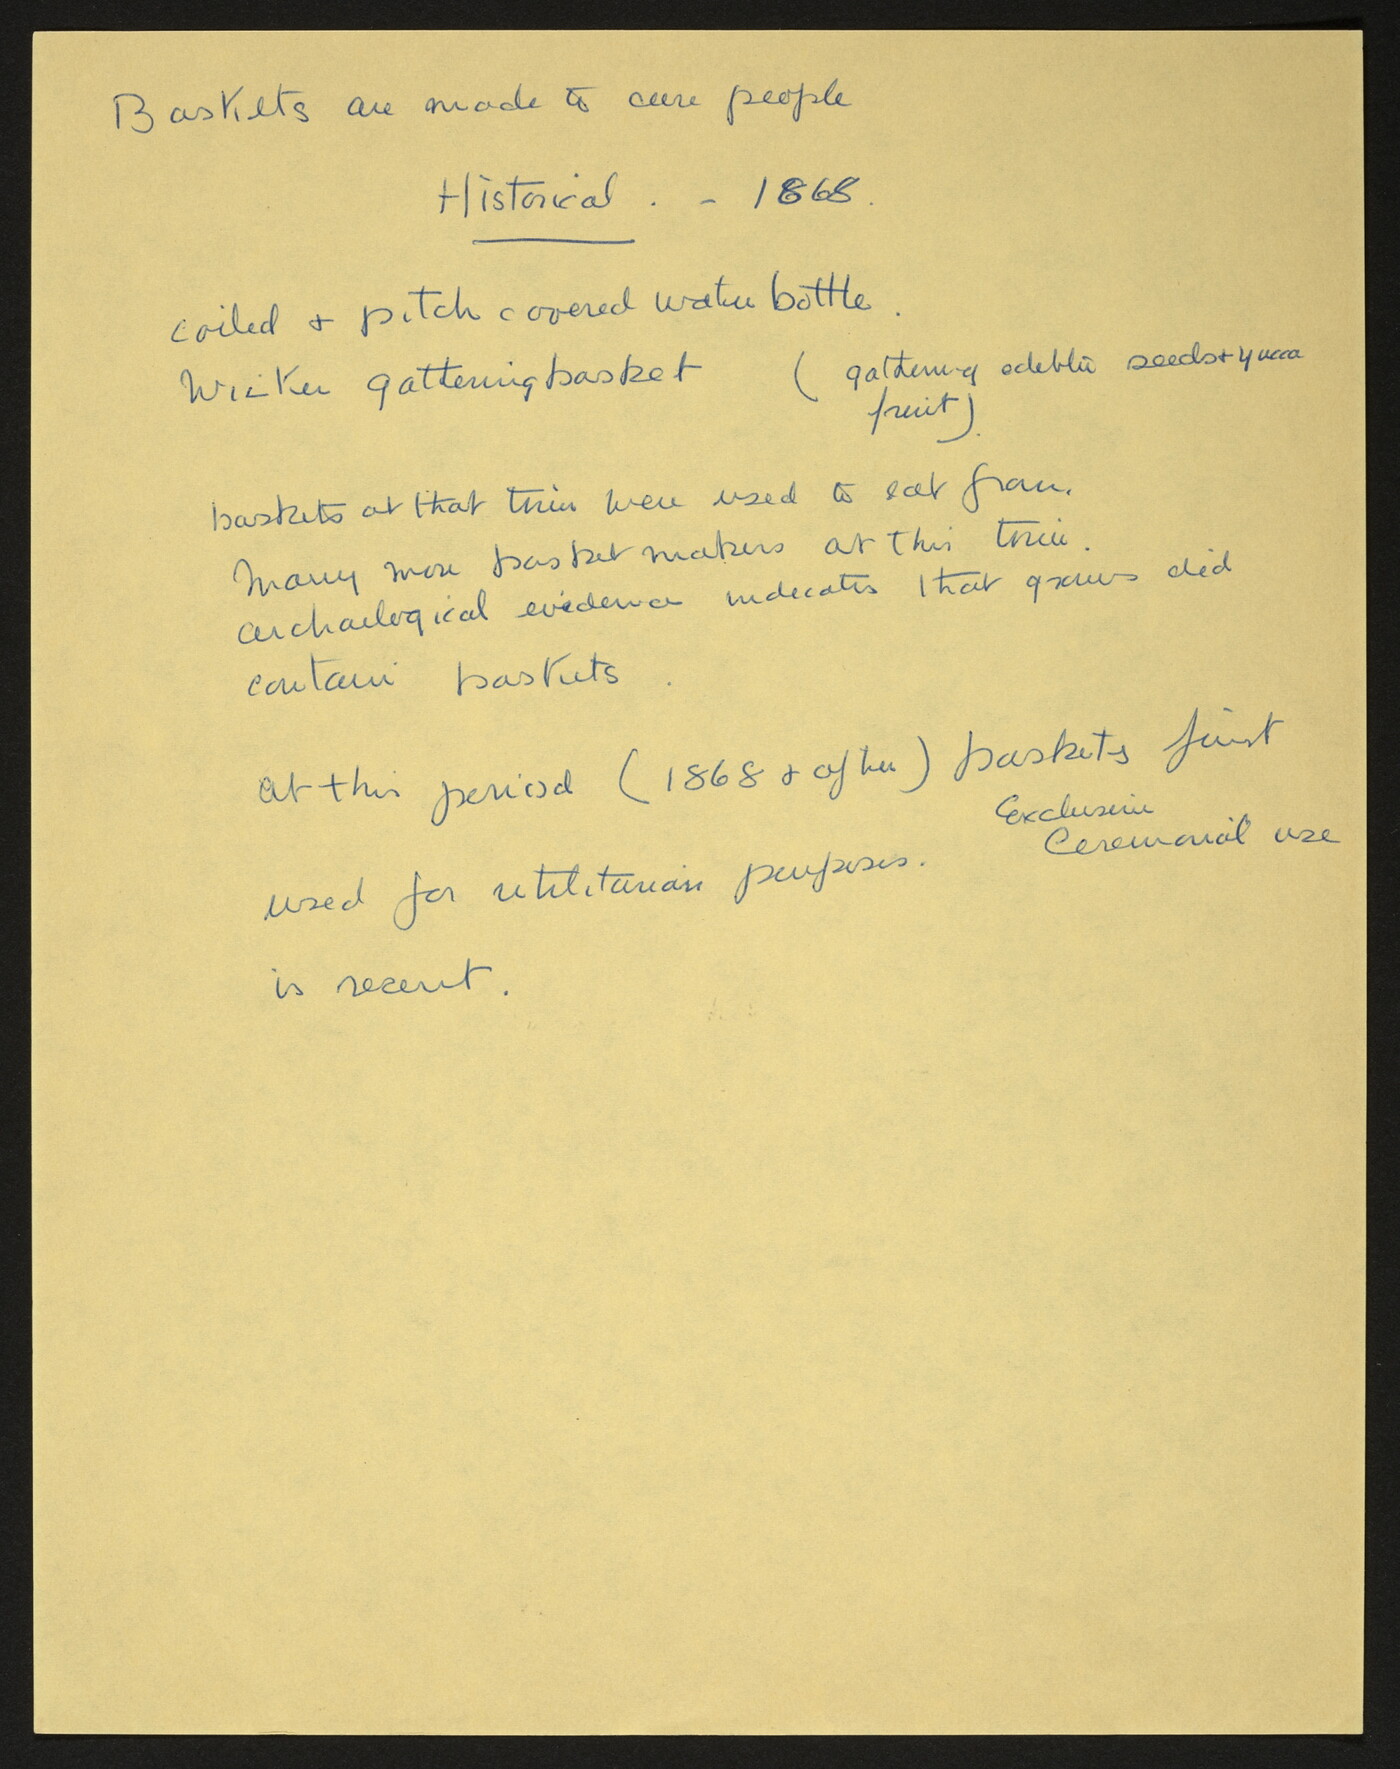 Baskets are made to cure people
Historical. - 1868.
coiled & pitch covered water bottle.
Wicker gathering basket (gathering edeble seeds & yucca
fruit).
baskets at that time were used to eat from.
Many more basket makers at this time.
archaelogical evidence indicates that graves did
contain baskets.
at this period (1868 & after) baskets first
Exclusive
Ceremonial use
used for utilitarian purposes.
is recent.